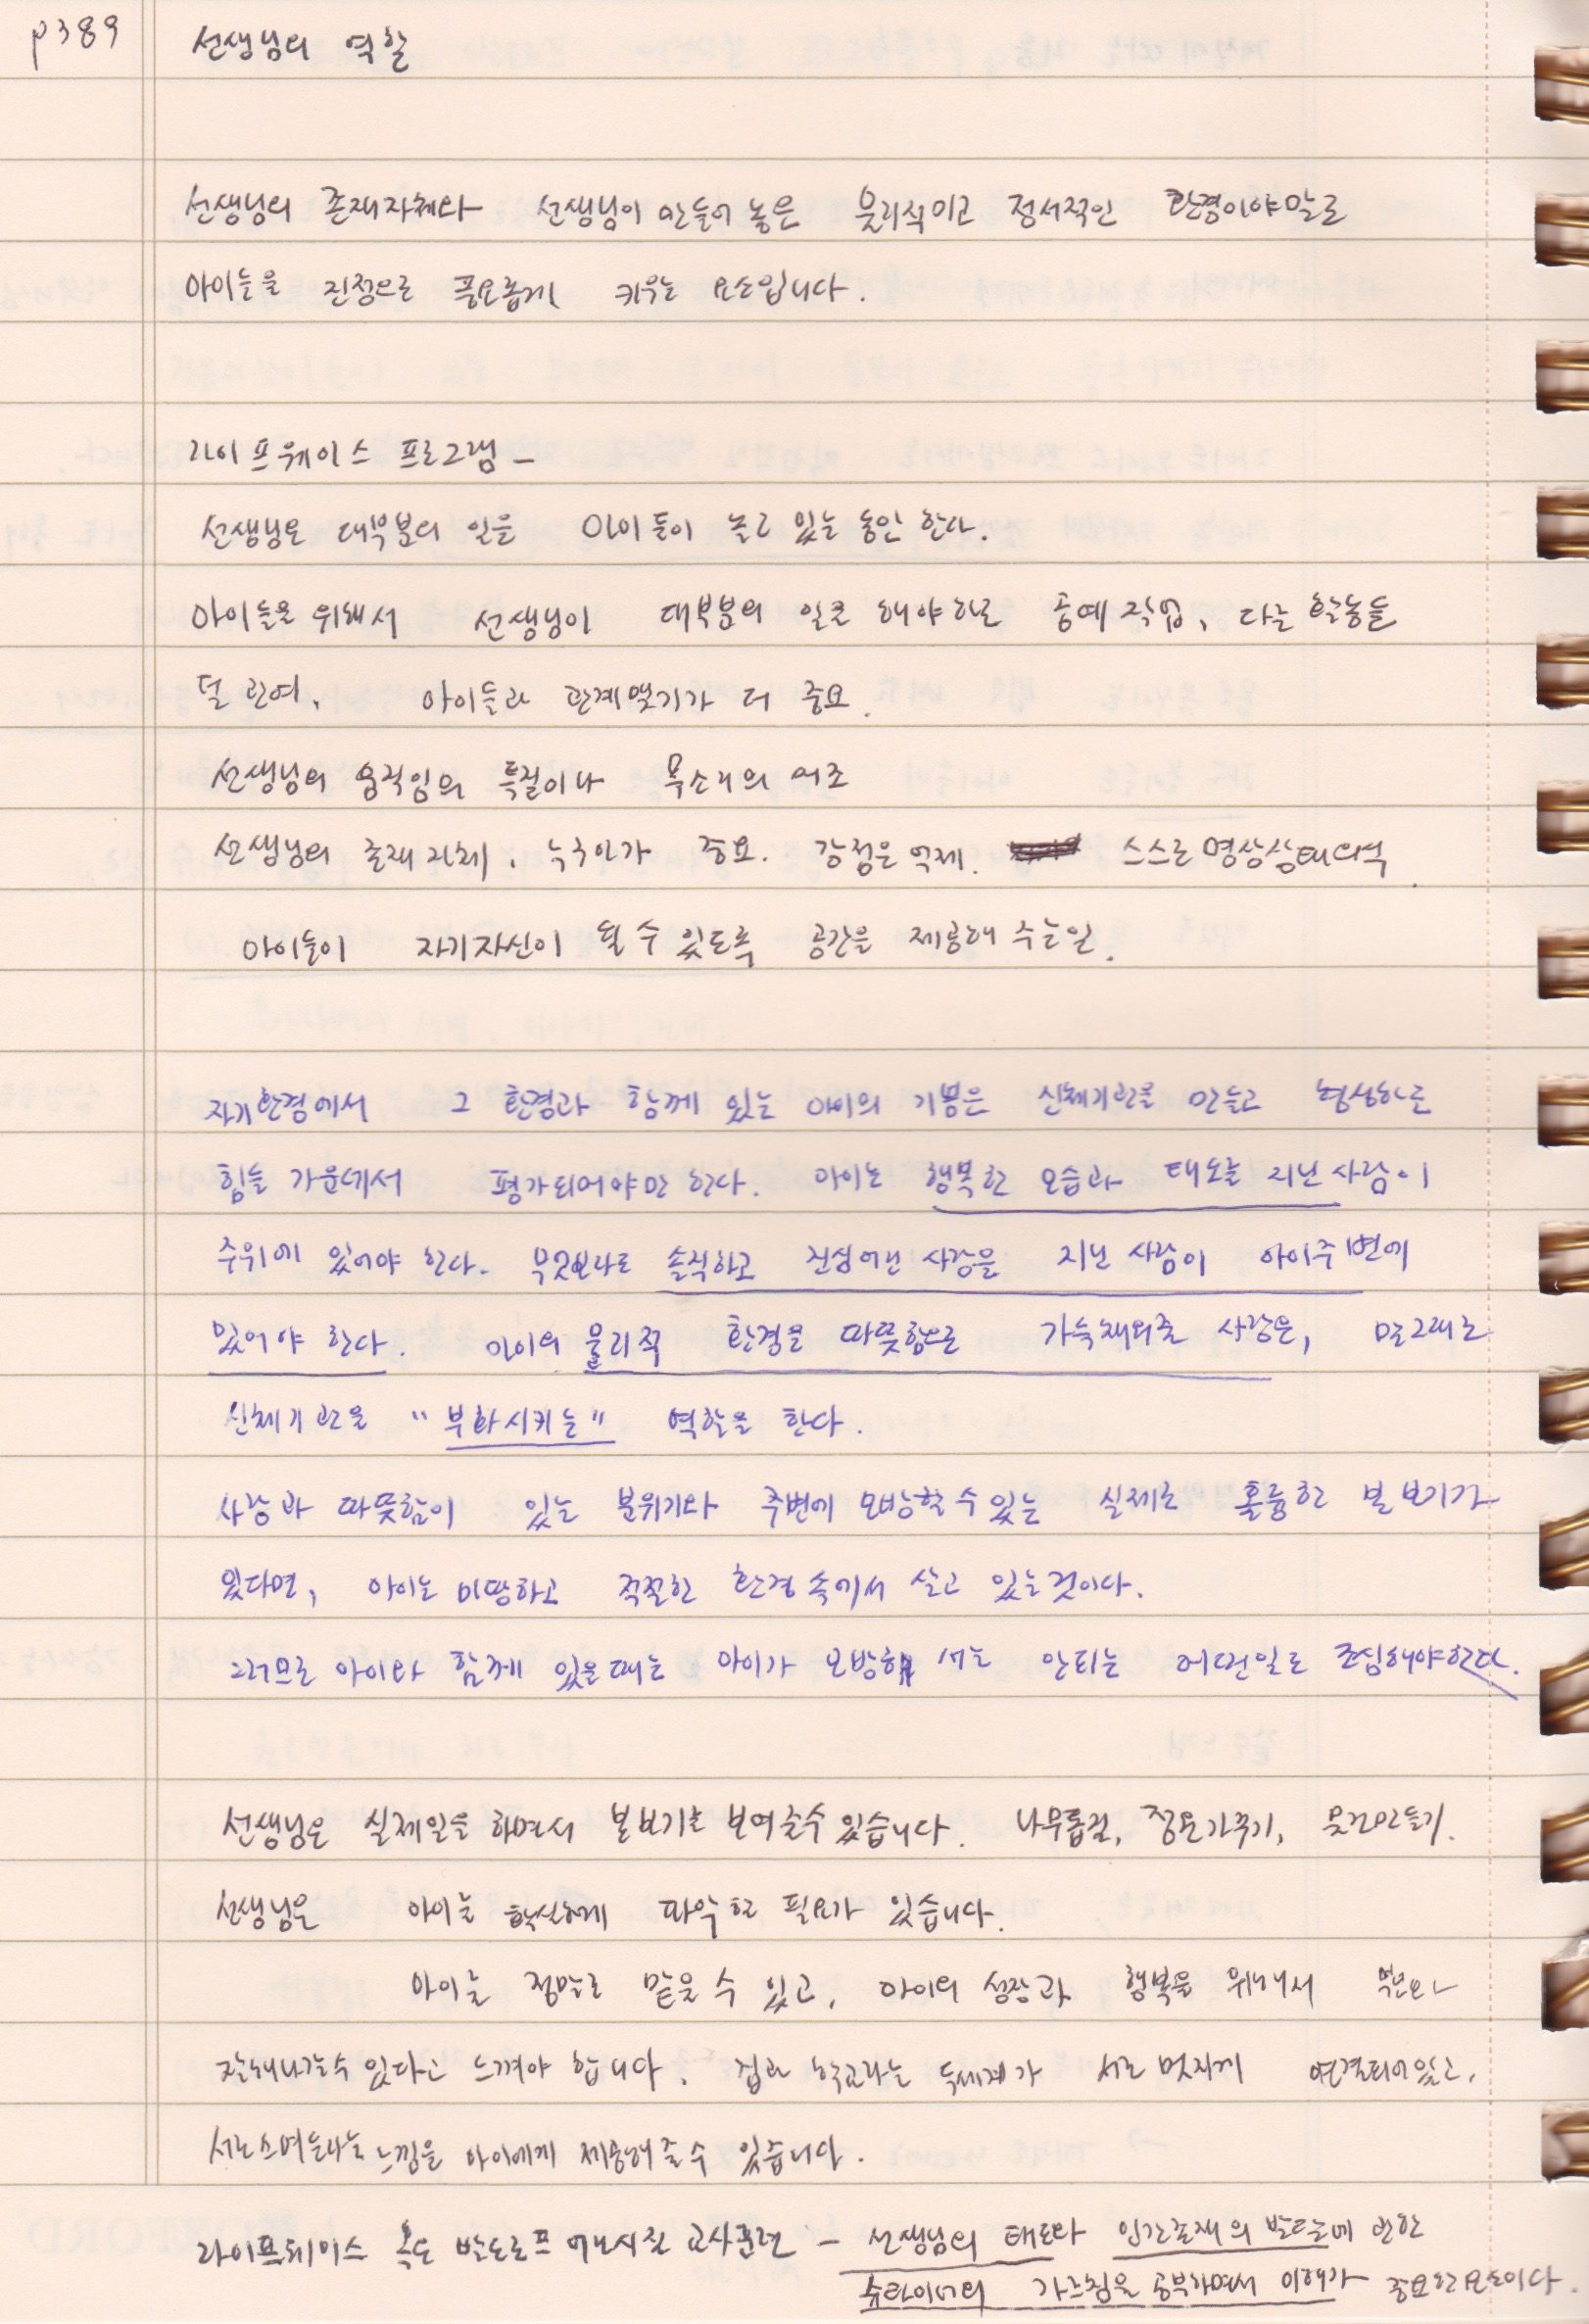 p389 선생님의 역할
선생님의 존재자체와 선생님이 만들어 놓은 물리적이고 정서적인 환경이야말로
아이들을 진정으로 풍요롭게 키우는 요소입니다.
라이프웨이스 프로그램 –
선생님은 대부분의 일을 아이들이 놀고 있는 동안 한다.
아이들을 위해서 선생님이 대부분의 일을 해야하는 공예작업, 다른 활동들
덜 관여, 아이들과 관계맺기가 더 중요.
선생님의 움직임의 특질이나 목소리의 어조
선생님의 존재 자체, 누구인가 중요. 감정은 억제. 스스로 명상상태
아이들이 자기자신이 될 수 있도록 공간을 제공해 주는일.
자기환경에서 그 환경과 함께 있는 아이의 기쁨은 신체기관을 만들고 형성하는
힘들 가운데서 평가되어야만 한다. 아이는 행복한 모습과 태도를 지닌 사람이
주위에 있어야 한다. 무엇보다도 솔직하고 진심어린 사랑을 지닌 사람이 아이주변에
있어야 한다. 아이의 물리적 환경을 따뜻함으로 가득채워준 사랑은, 말그대로
신체기관을 "부화시키는" 역할을 한다.
사랑과 따뜻함이 있는 분위기와 주변에 모방할 수 있는 실제로 훌륭한 본보기가
있다면, 아이는 마땅하고 적절한 환경 속에서 살고 있는것이다.
그러므로 아이와 함께 있을때는 아이가 모방해서는 안되는 어떤일도 조심해야한다.
선생님은 실제일을 하면서 본보기를 보여줄수 있습니다. 나무톱질, 정원가꾸기, 물건만들기.
선생님은 아이를 확실하게 파악할 필요가 있습니다.
아이는 정말로 맡을 수 있고, 아이의 성장과 행복을 위해서 부모와
잘해나갈수 있다고 느껴야 합니다. 집과 학교라는 두세계가 서로 멋지게 연결되어있고,
서로스며든다는 느낌을 아이에게 제공해 줄 수 있습니다.
라이프웨이스 혹은 발도르프 교사훈련 – 선생님의 태도와 인간존재의 발달에 관한
슈타이너의 가르침을 공부하면서 이해가 중요한 요소이다.